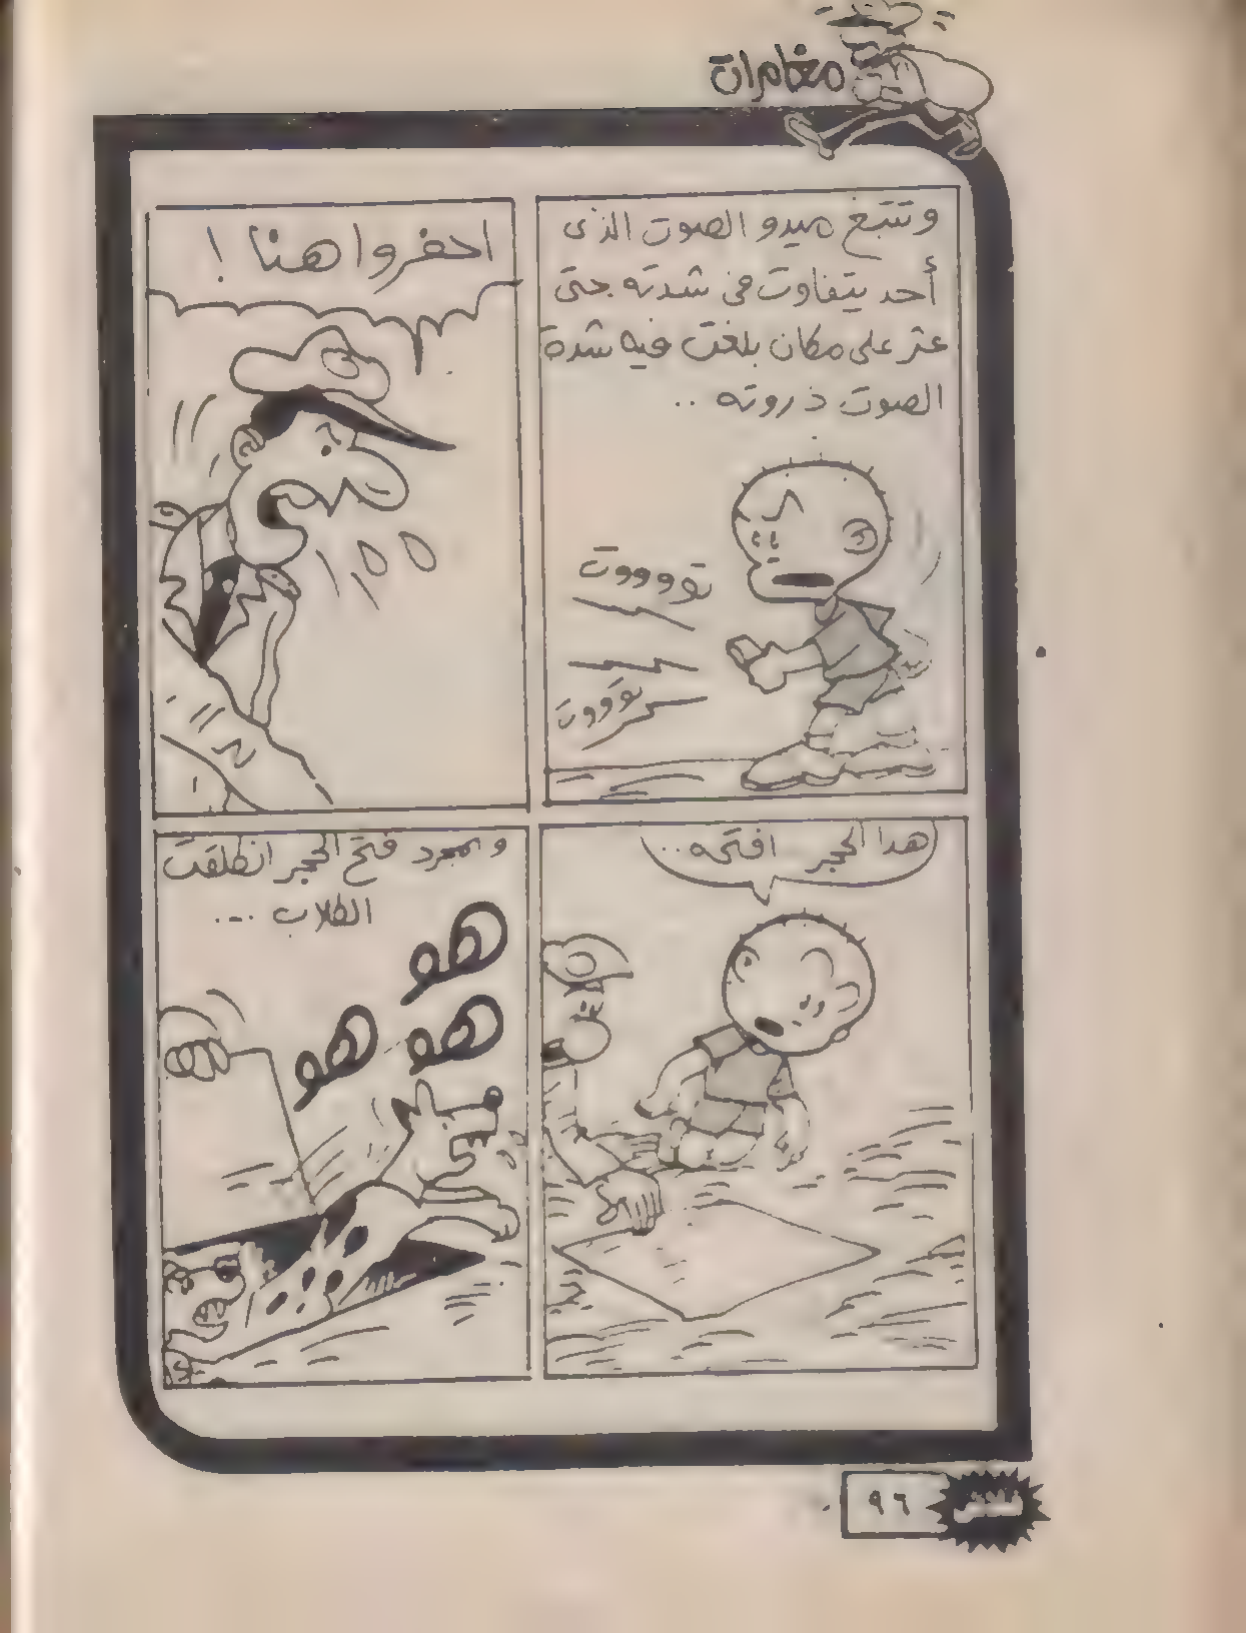 مغامرات
وتتبع ميدو الصوت الذى
أحد يتفاوت فى شدته حتى
عثر على مكان بلغت فيه شدة
الصوت ذروته ..
توووووت
توووت
احفروا هنا !
هذا الحجر افتحه ..
وبمجرد فتح الحجر انطلقت
الكلاب ...
هو
هو
هو
فلاش
٩٦